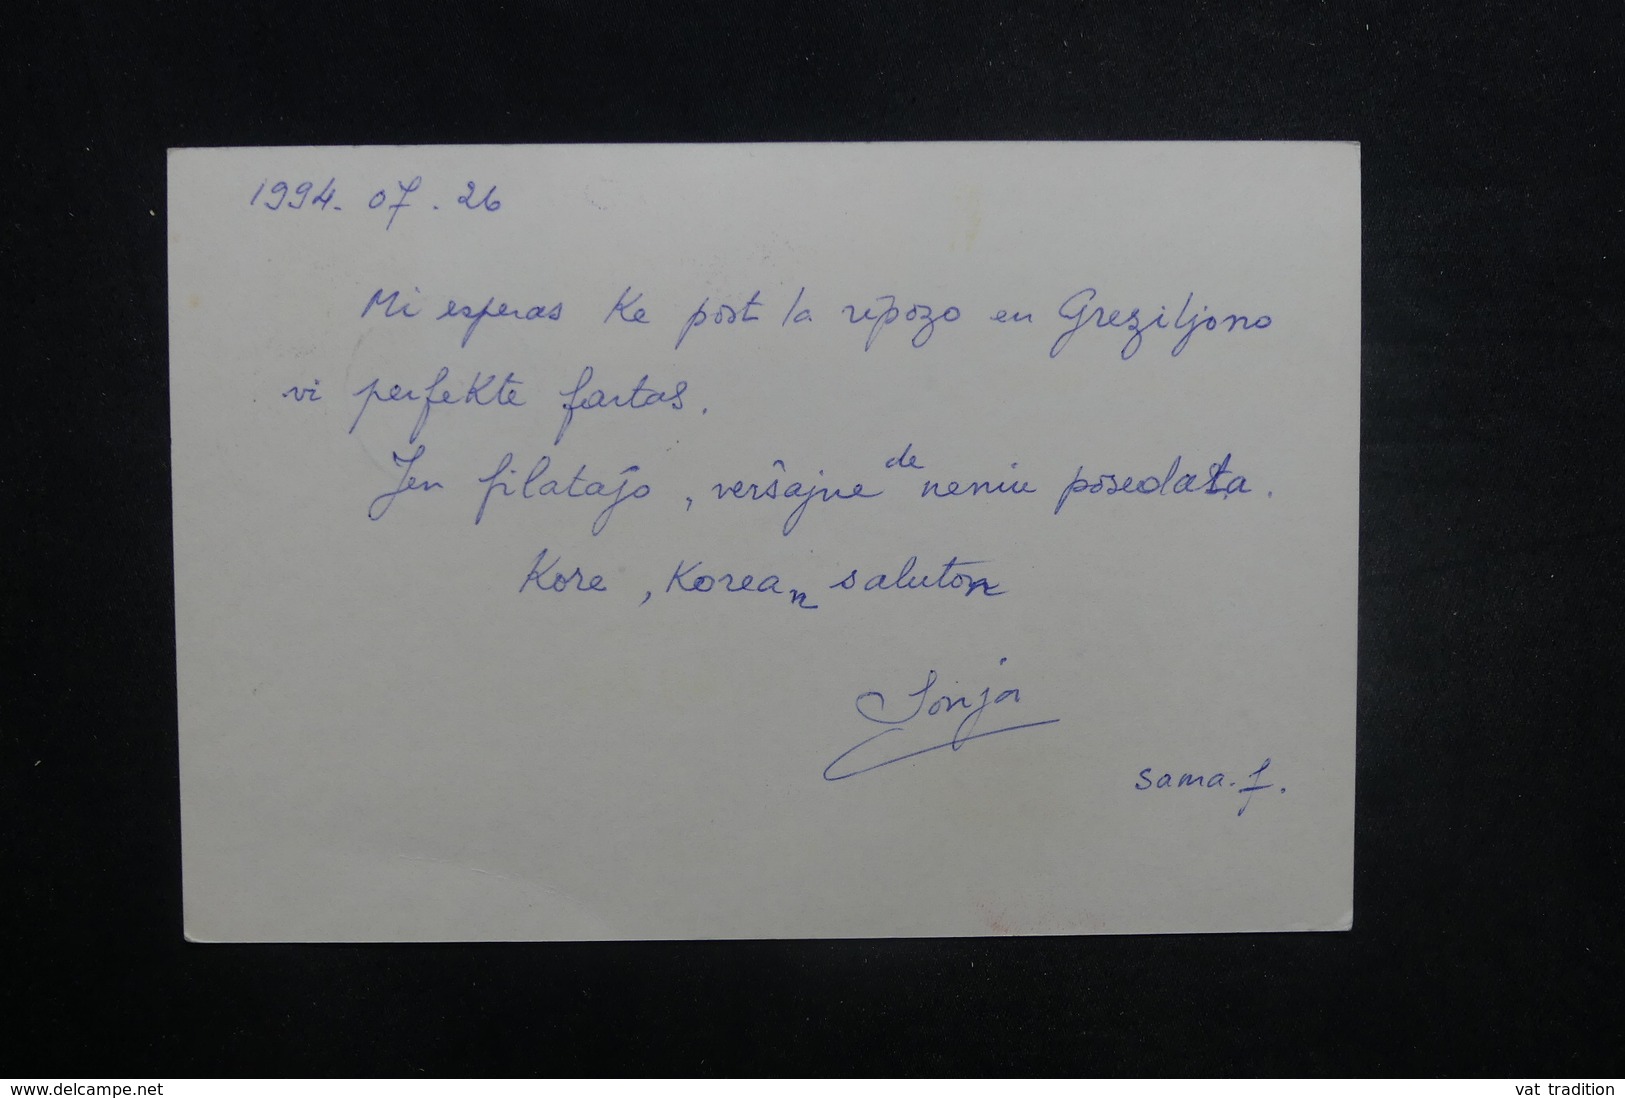 1994. 07. 26
Mi esperas ke post la ripozo en Greziljono
vi perfekte fartas.
Jen filataĵo, verŝajne de neniu posedata.
Kore, Korean saluton
Sonja
sama. f.
www.delcampe.net
vat tradition